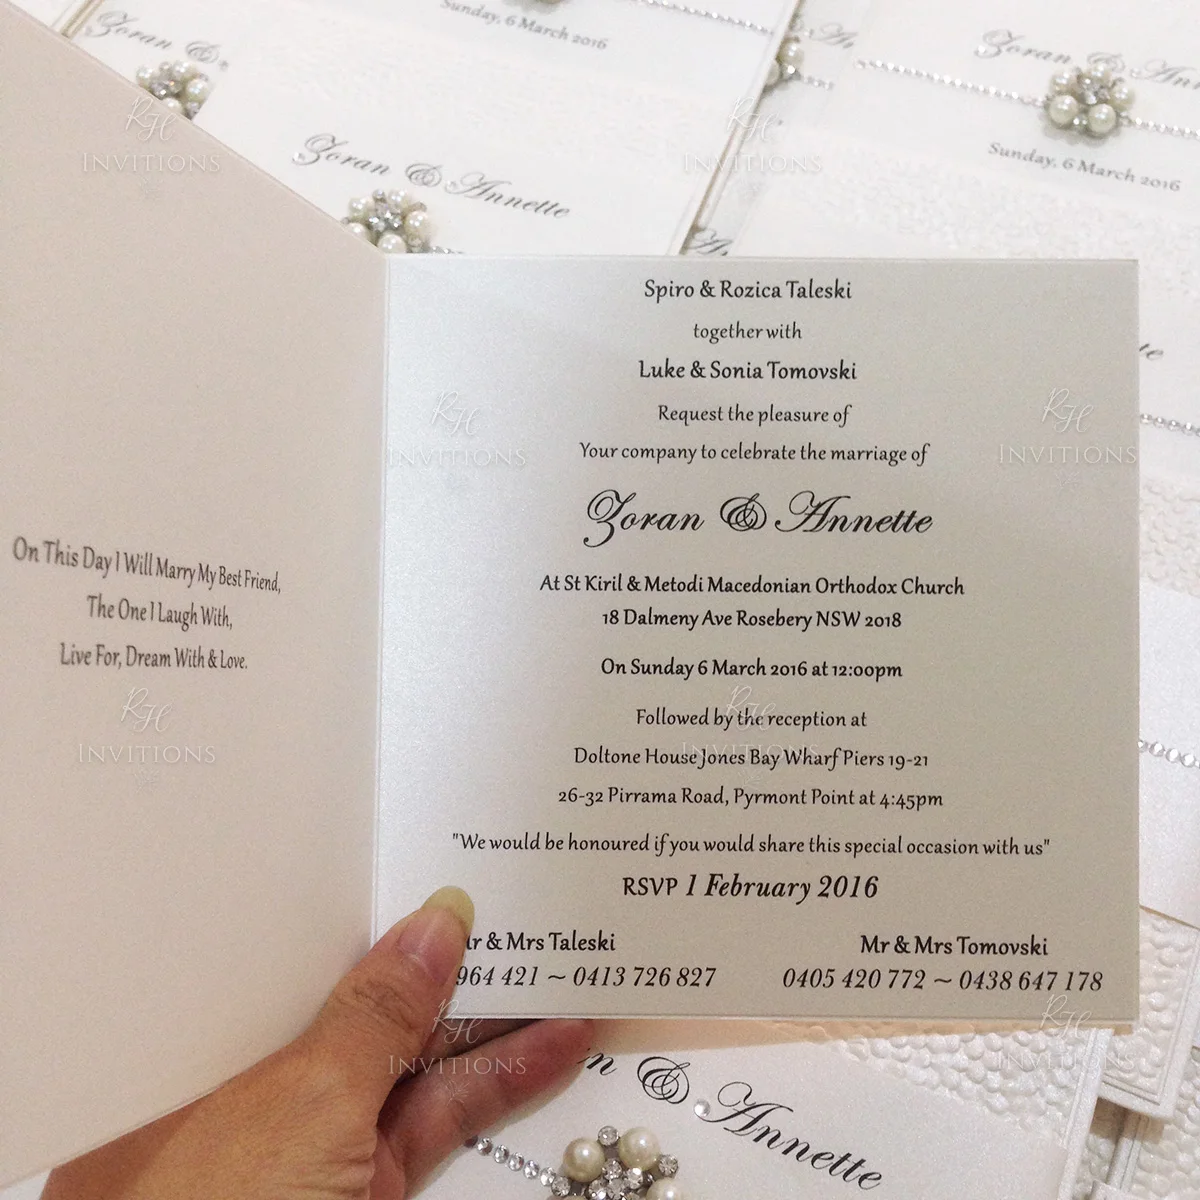 Zoran &
Sunday, 6 March 2016
Zoran & Annette
Zoran &
Sunday, 6 March 2016
On This Day I Will Marry My Best Friend,
The One I Laugh With,
Live For, Dream With & Love.
Spiro & Rozica Taleski
together with
Luke & Sonia Tomovski
Request the pleasure of
Your company to celebrate the marriage of
Zoran & Annette
At St Kiril & Metodi Macedonian Orthodox Church
18 Dalmeny Ave Rosebery NSW 2018
On Sunday 6 March 2016 at 12:00pm
Followed by the reception at
Doltone House Jones Bay Wharf Piers 19-21
26-32 Pirrama Road, Pyrmont Point at 4:45pm
"We would be honoured if you would share this special occasion with us"
RSVP 1 February 2016
& Mrs Taleski
964 421 ~ 0413 726 827
Mr & Mrs Tomovski
0405 420 772 ~ 0438 647 178
& Annette
RH
INVITIONS
RH
INVITIONS
RH
INVITIONS
RH
INVITIONS
RH
INVITIONS
RH
INVITIONS
RH
INVITIONS
RH
INVITIONS